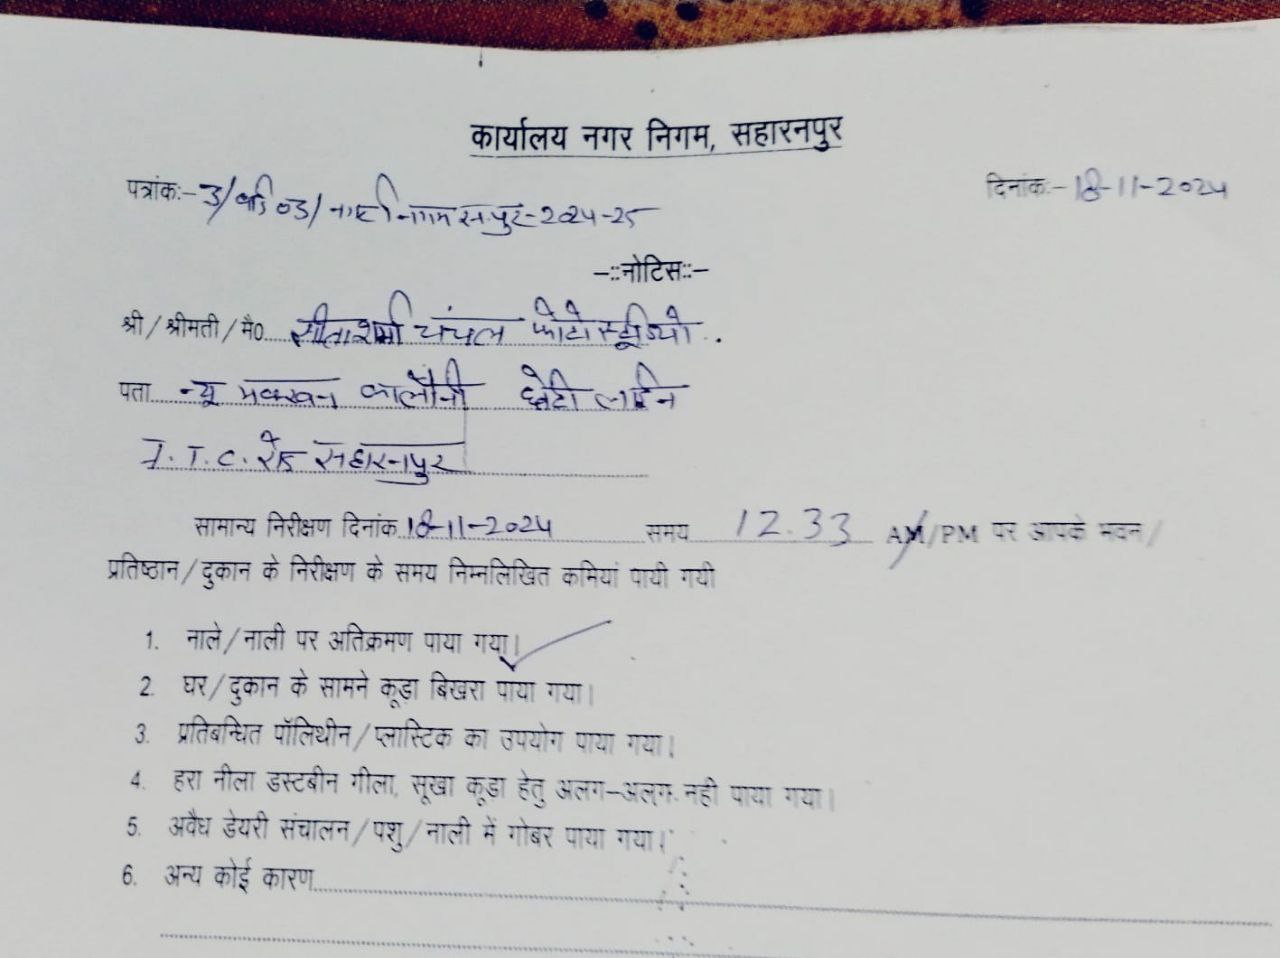 कार्यालय नगर निगम, सहारनपुर
पत्रांक:- 3/ नगर निगम सपुर-2024-25
दिनांक:- 18-11-2024
-::नोटिस::-
श्री/श्रीमती/मै0 शर्मा चंचल फोटो स्टूडियो
पता न्यू मक्खन कालौनी लाईन
I.T.C. रोड सहारनपुर
सामान्य निरीक्षण दिनांक 18-11-2024 समय 12.33 AM/PM पर आपके भवन/
प्रतिष्ठान/दुकान के निरीक्षण के समय निम्नलिखित कमियां पायी गयी
1. नाले/नाली पर अतिक्रमण पाया गया।
2. घर/दुकान के सामने कूड़ा बिखरा पाया गया।
3. प्रतिबन्धित पॉलिथीन/प्लास्टिक का उपयोग पाया गया।
4. हरा नीला डस्टबीन गीला, सूखा कूड़ा हेतु अलग-अलग नही पाया गया।
5. अवैध डेयरी संचालन/पशु/नाली में गोबर पाया गया।
6. अन्य कोई कारण